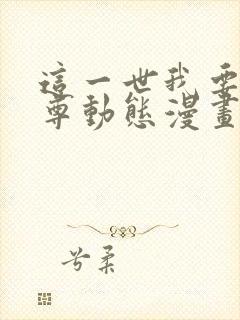 這一世我要
尊動態漫畫
兮柔